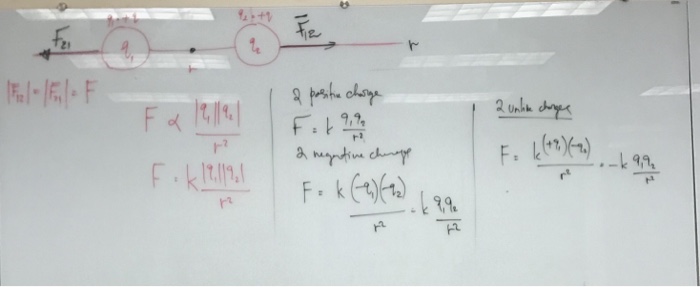 q₁:+q
q₂:+q
F₂₁
q₁
q₂
F̄₁₂
r
r
|F₁₂| = |F₂₁| = F
F ∝ |q₁||q₂| / r²
F = k |q₁||q₂| / r²
2 positive charge
F = k q₁q₂ / r²
2 negative charge
F = k (-q₁)(-q₂) / r² = k q₁q₂ / r²
2 unlike charges
F = k (+q₁)(-q₂) / r² = -k q₁q₂ / r²